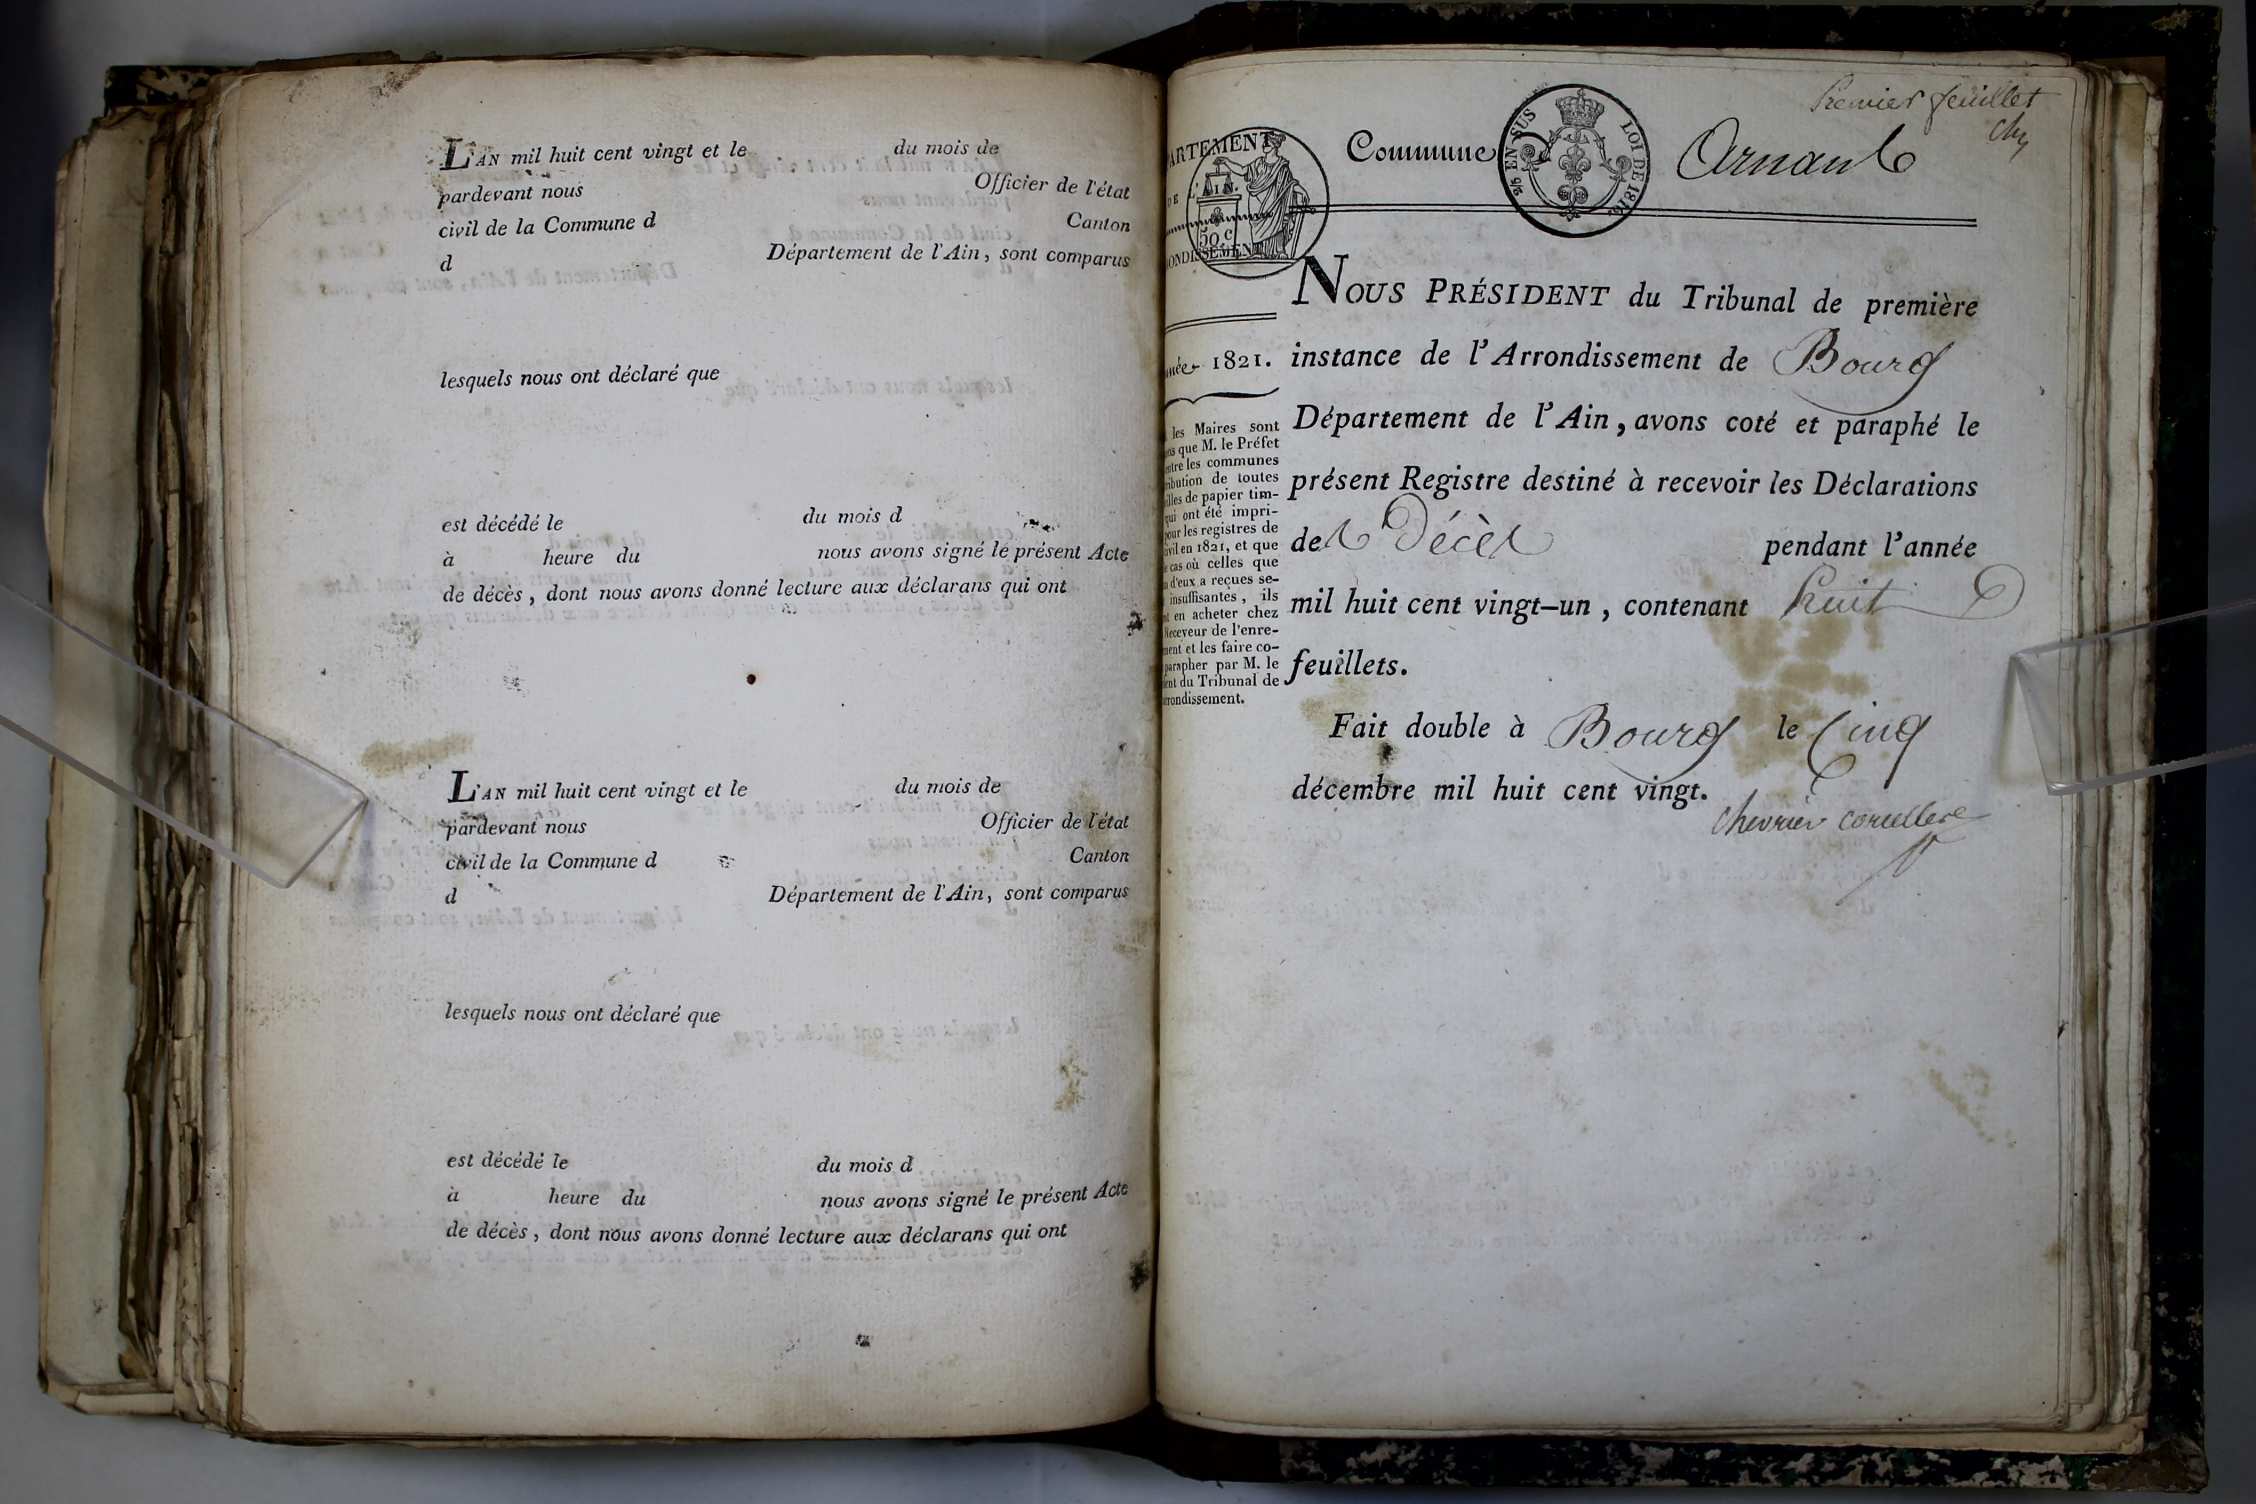 L'AN mil huit cent vingt et le du mois de
pardevant nous Officier de l'état
civil de la Commune d Canton
d Département de l'Ain, sont comparus
lesquels nous ont déclaré que
est décédé le du mois d
à heure du nous avons signé le présent Acte
de décès, dont nous avons donné lecture aux déclarans qui ont
L'AN mil huit cent vingt et le du mois de
pardevant nous Officier de l'état
civil de la Commune d Canton
d Département de l'Ain, sont comparus
lesquels nous ont déclaré que
est décédé le du mois d
à heure du nous avons signé le présent Acte
de décès, dont nous avons donné lecture aux déclarans qui ont
Premier feuillet
ARTEMENT
DE L'AIN.
50 c
ONDISSEMENT
Commune
EN SUS LOI DE 1816
Arnans
1821.
les Maires sont
que M. le Préfet
les communes
de toutes
de papier tim-
qui ont été impri-
les registres de
en 1821, et que
cas où celles que
d'eux a reçues se-
insuffisantes, ils
en acheter chez
Receveur de l'enre-
et les faire co-
parapher par M. le
du Tribunal de
NOUS PRÉSIDENT du Tribunal de première
instance de l'Arrondissement de Bourg
Département de l'Ain, avons coté et paraphé le
présent Registre destiné à recevoir les Déclarations
des Décès pendant l'année
mil huit cent vingt-un, contenant huit
feuillets.
Fait double à Bourg le cinq
décembre mil huit cent vingt.
Chevrier corcelles